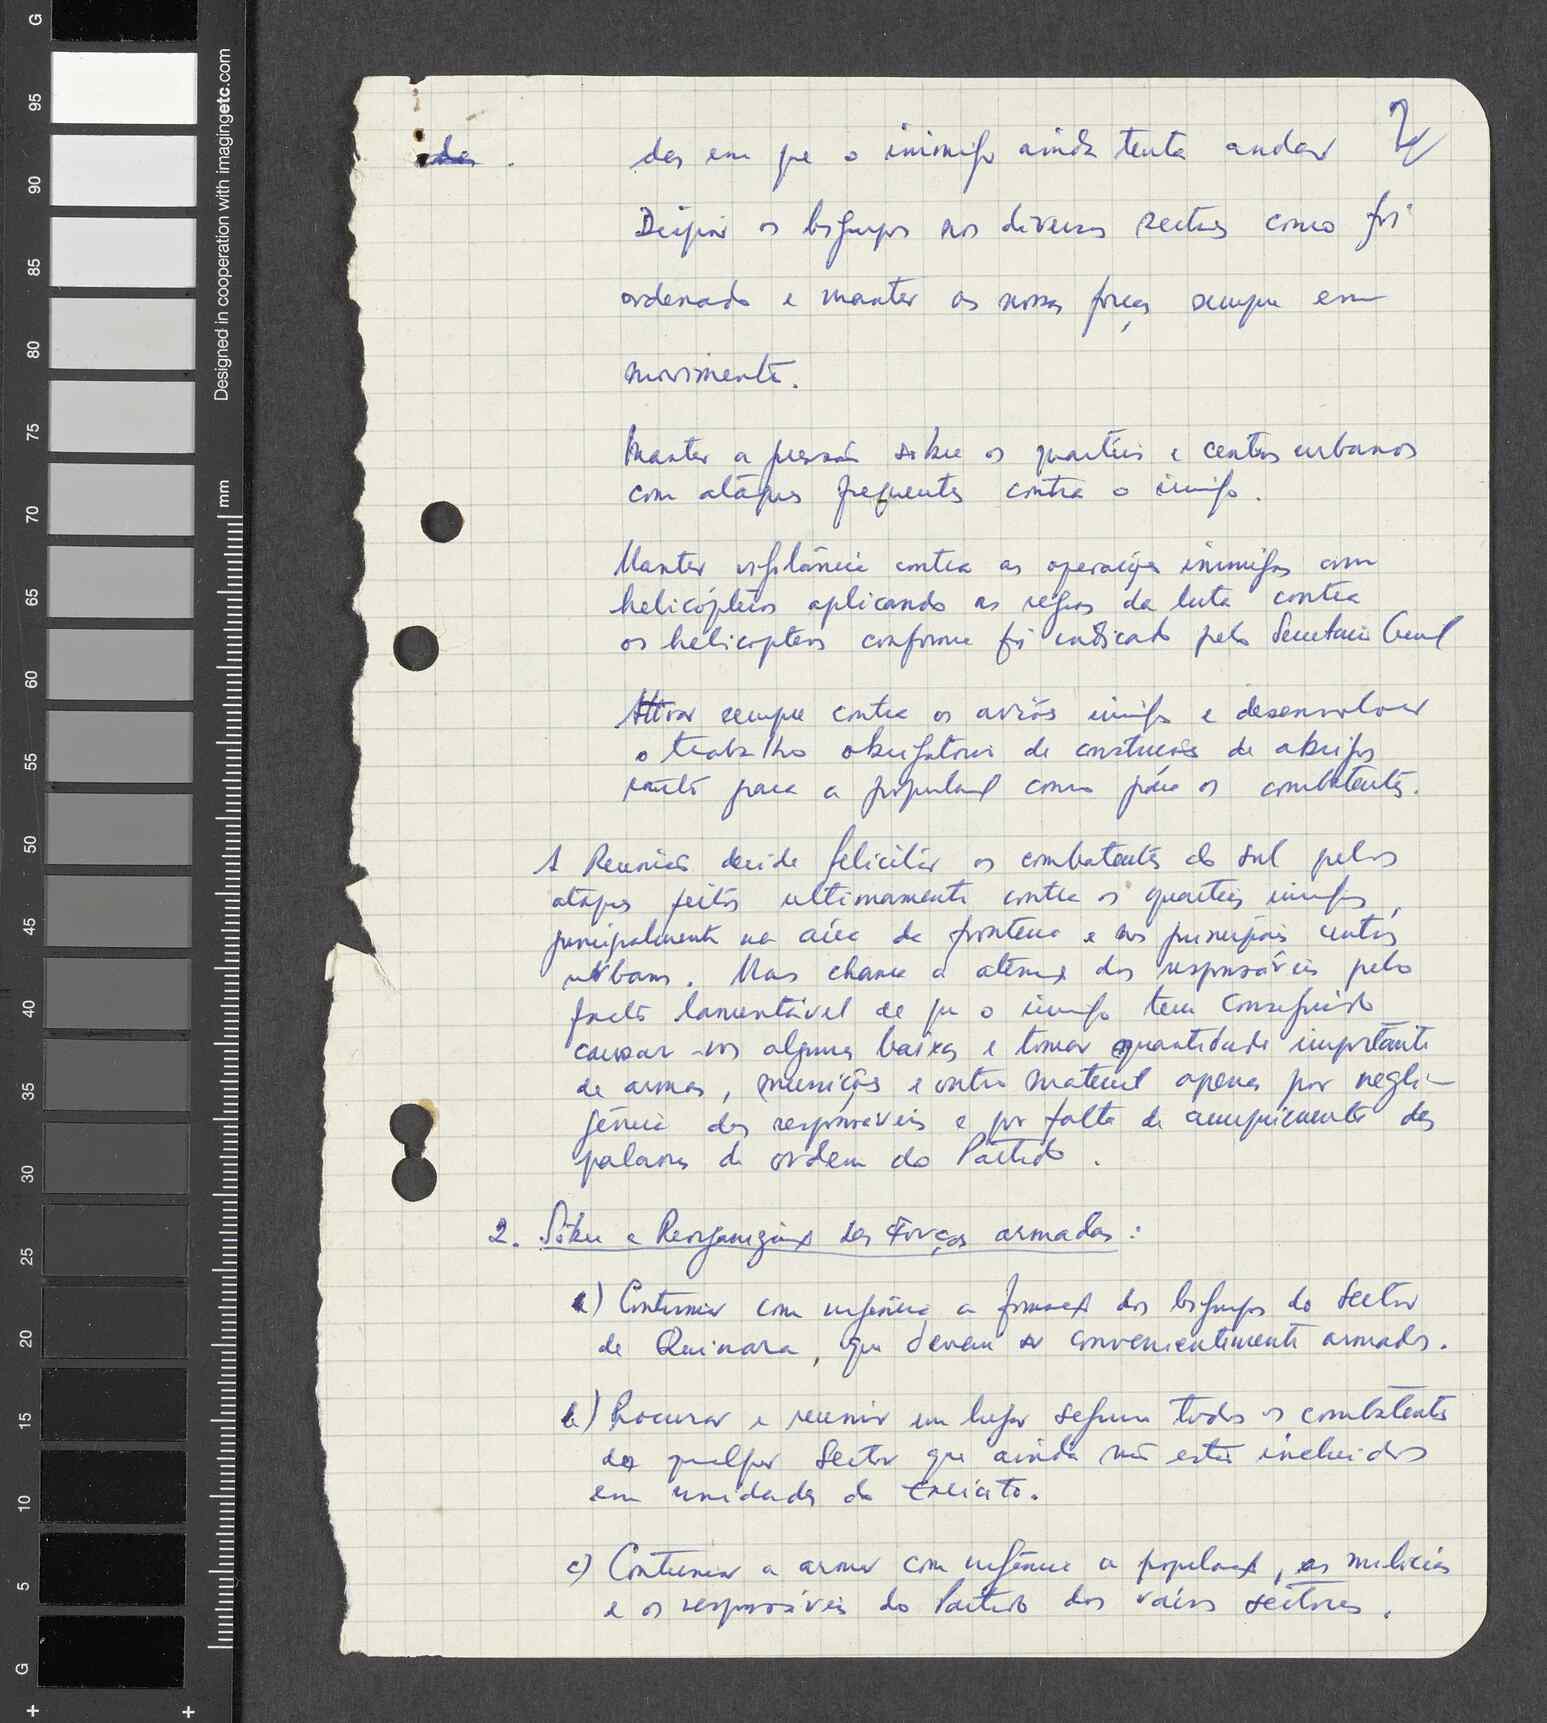 2
das em que o inimigo ainda tenta andar
Dirigir os bigrupos nos diversos sectores como foi
ordenado e manter as nossas forças sempre em
movimento.
Manter a pressão sobre os quartéis e centros urbanos
com ataques frequentes contra o inimigo.
Manter vigilância contra as operações inimigas com
helicópteros aplicando as regras da luta contra
os helicopteros conforme foi indicado pelo Secretario Geral
Atirar sempre contra os aviões inimigos e desenvolver
o trabalho obrigatorio de construção de abrigos
tanto para a população como para os combatentes.
A Reunião decide felicitar os combatentes do Sul pelos
ataques feitos ultimamente contra os quarteis inimigos,
principalmente na área da fronteira e nos principais centros
urbanos. Mas chama a atenção dos responsáveis pelo
facto lamentável de que o inimigo tem conseguido
causar-nos algumas baixas e tomar quantidade importante
de armas, munições e outro material apenas por negli-
gência dos responsáveis e por falta de cumprimento das
palavras de ordem do Partido.
2. Sôbre a Reorganização das Forças armadas:
a) Continuar com urgência a formação dos bigrupos do Sector
de Quinara, que devem ser convenientemente armados.
b) Procurar e reunir em lugar seguro todos os combatentes
de qualquer Sector que ainda não estão incluidos
em unidades do Exército.
c) Continuar a armar com urgência a população, as milicias
e os responsáveis do Partido dos vários sectores.
Designed in cooperation with imagingetc.com
mm
G
95
90
85
80
75
70
65
60
55
50
45
40
35
30
25
20
15
10
5
G